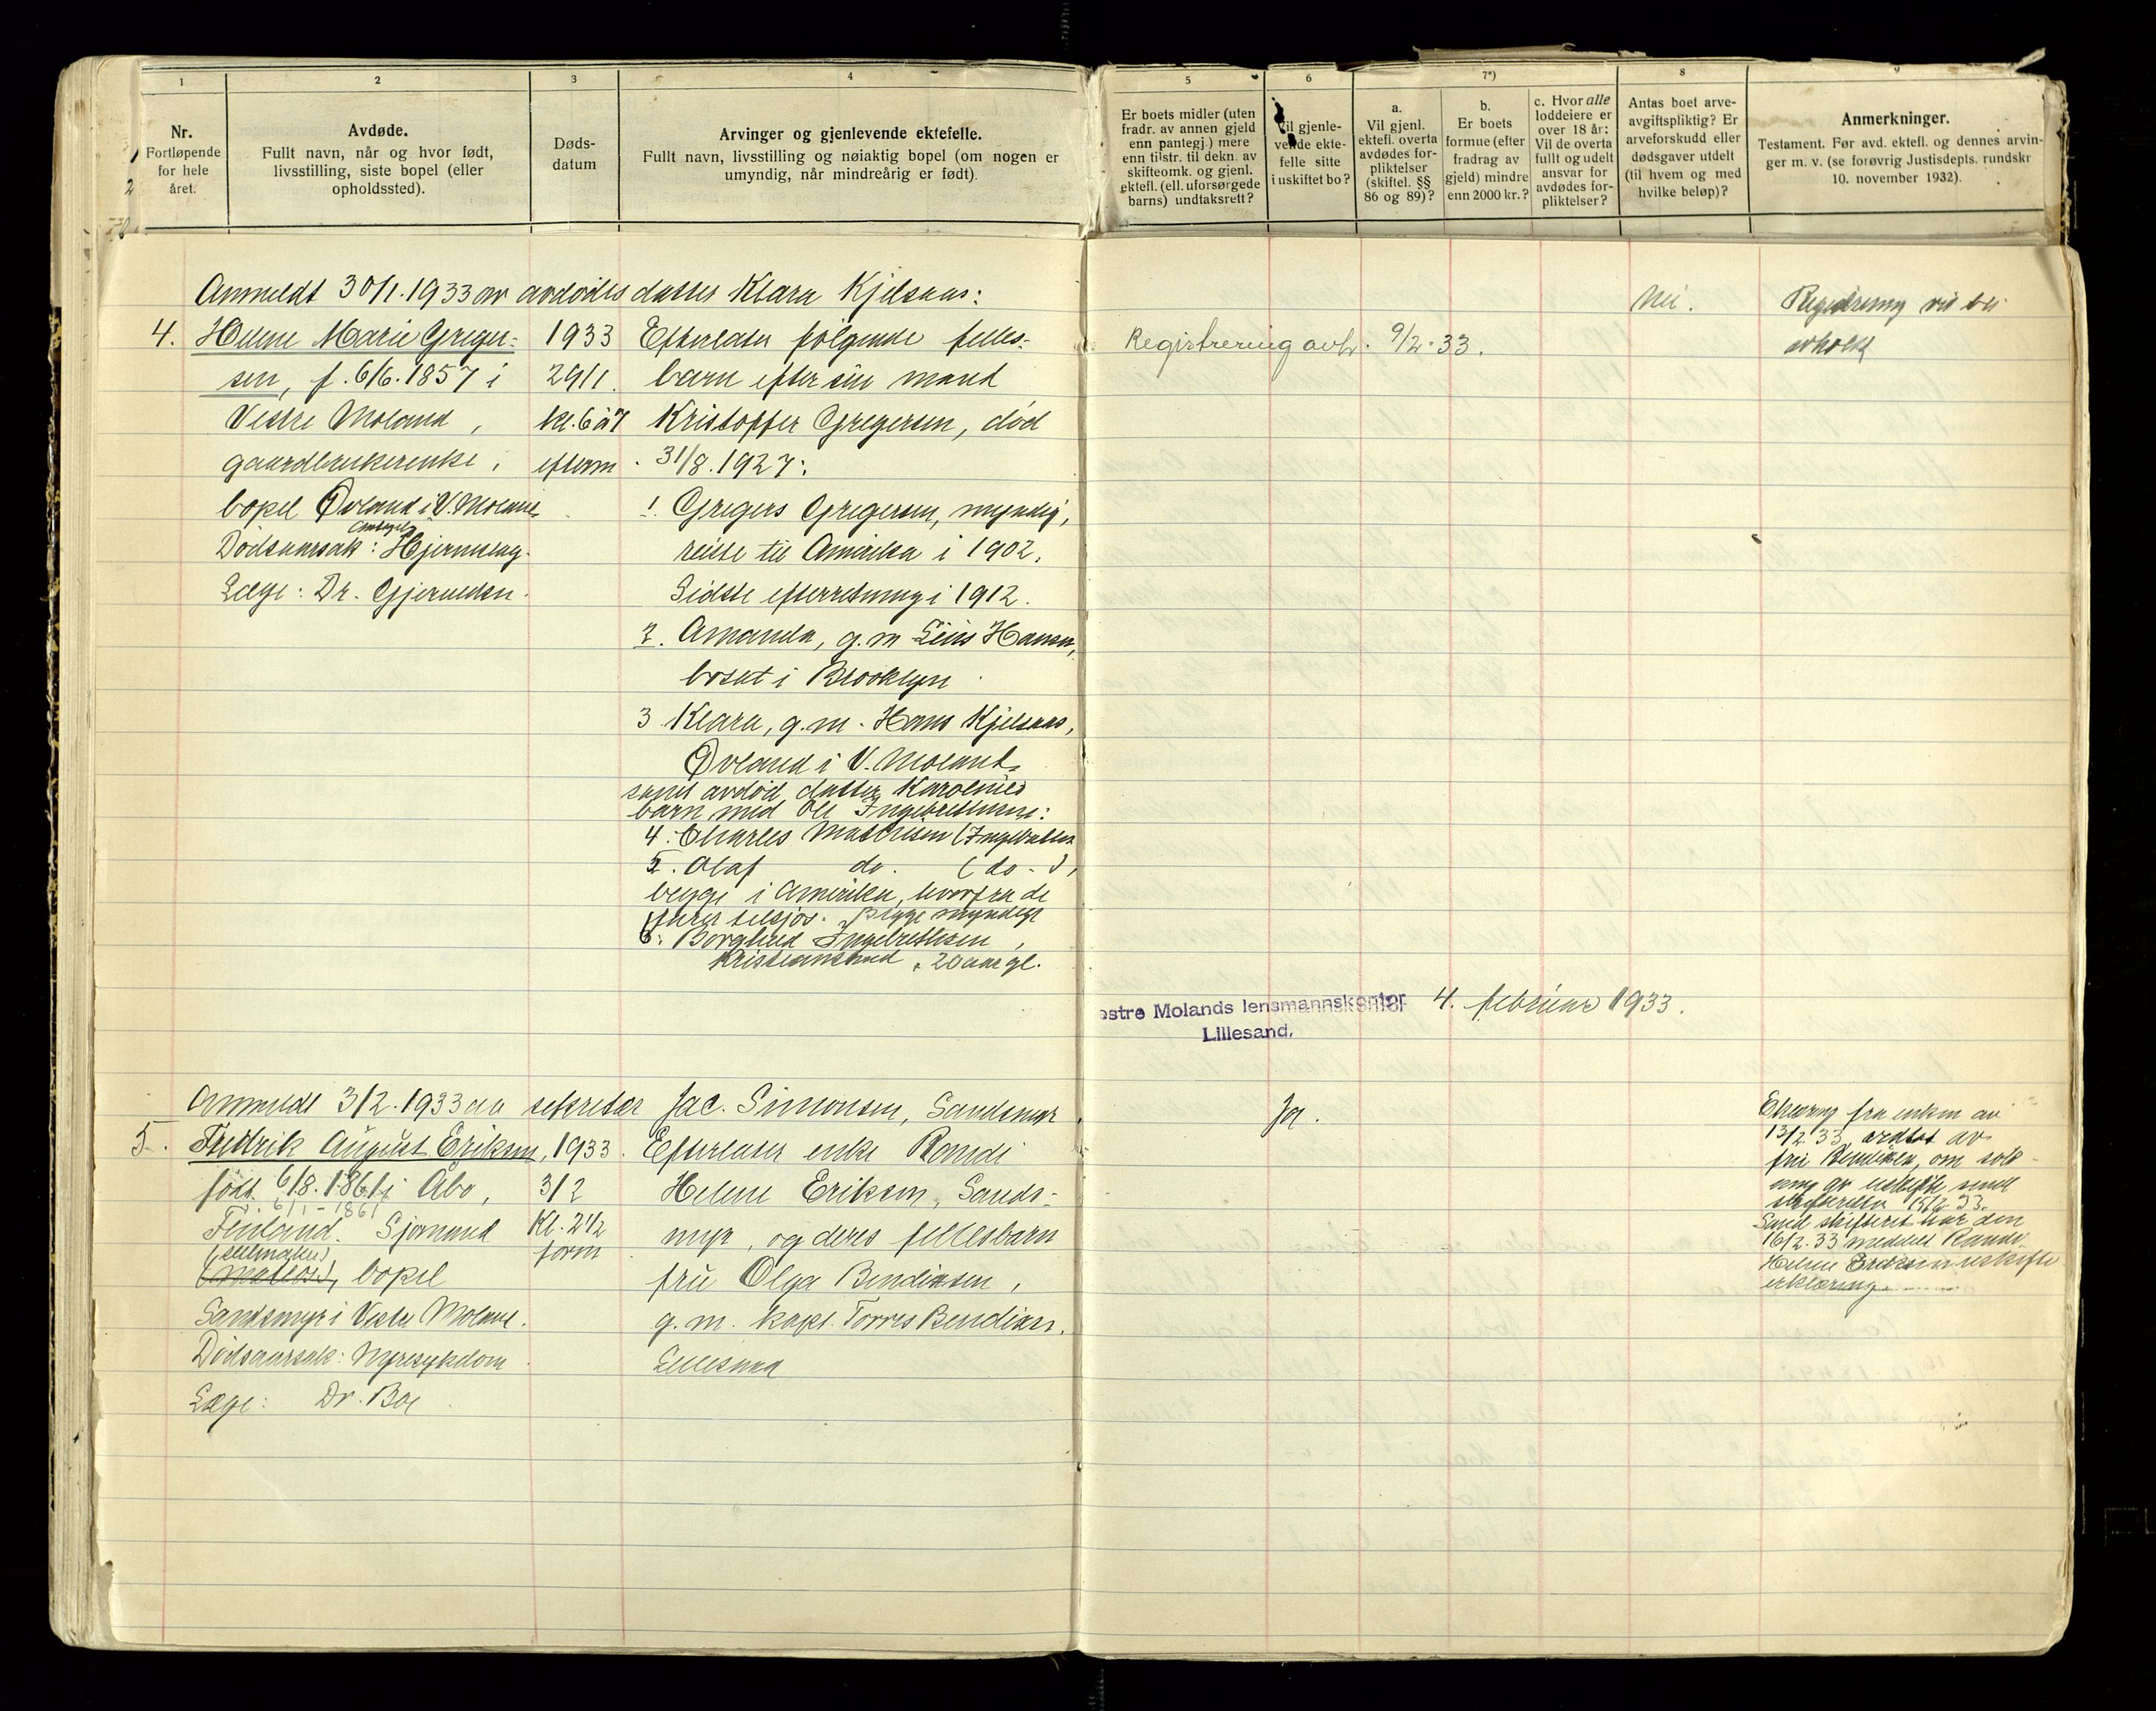 1
Nr.
Fortløpende
for hele
året.
2
Avdøde.
Fullt navn, når og hvor født,
livsstilling, siste bopel (eller
opholdssted).
3
Døds-
datum
4
Arvinger og gjenlevende ektefelle.
Fullt navn, livsstilling og nøiaktig bopel (om nogen er
umyndig, når mindreårig er født).
5
Er boets midler (uten
fradr. av annen gjeld
enn pantegj.) mere
enn tilstr. til dekn. av
skifteomk. og gjenl.
ektefl. (ell. uforsørgede
barns) undtaksrett?
6
Vil gjenle-
vende ekte-
felle sitte
i uskiftet bo?
7*)
a.
Vil gjenl.
ektefl. overta
avdødes for-
pliktelser
(skiftel. §§
86 og 89)?
b.
Er boets
formue (efter
fradrag av
gjeld) mindre
enn 2000 kr.?
c. Hvor alle
loddeiere er
over 18 år:
Vil de overta
fullt og udelt
ansvar for
avdødes for-
pliktelser?
8
Antas boet arve-
avgiftspliktig? Er
arveforskudd eller
dødsgaver utdelt
(til hvem og med
hvilke beløp)?
9
Anmerkninger.
Testament. Før avd. ektefl. og dennes arvin-
ger m. v. (se forøvrig Justisdepts. rundskr
10. november 1932).
Anmeldt 30/1.1933 av avdødes datter Klara Kjelsaas:
4. Helene Marie Greger-
sen, f. 6/6.1857 i
Vestre Moland,
gaardbrukerenke,
bopel Øvland i V. Moland
Dødsaarsak: Hjerneslag.
Læge: Dr. Gjerueldsen.
1933
29/1.
kl. 6 à 7
efterm.
Efterlater følgende felles-
barn efter sin mand
Kristoffer Gregersen, død
31/8.1927:
1. Gregers Gregersen, myndig,
reiste til Amerika i 1902.
Sidste efterretning i 1912.
2. Amanda, g.m. Hansen,
bosat i Brooklyn
3 Klara, g.m. Hans Kjelsaas,
Øvland i V. Moland,
samt avdød datter Karolines
barn med Ole Ingebrethsen:
4. Charles Mathisen (Ingebrethsen
5. Olaf do. (do.),
begge i Amerika, hvorfra de
farer tilsjøs. Begge myndige
6. Borghild Ingebrethsen,
Kristiansand, 20 aar gl.
Registrering avh. 9/2.33.
Nei.
Registrering vil bli
avholdt
Vestre Molands lensmannskontor
Lillesand.
4. februar 1933.
Anmeldt 3/2.1933 av sekretær Jac. Simonsen, Sandsmyr.
5. Fredrik August Eriksen,
født 6/8.1861 i Åbo,
6/1-1861
Finland. Sjømand
(seilmaker)
(matros), bopel
Sandsmyr i Vestre Moland.
Dødsaarsak: Nyresykdom
Læge: Dr. Boe
1933.
3/2
Kl. 2 1/2
form
Efterlater enke Randi
Helene Eriksen, Sands-
myr, og deres fellesbarn
fru Olga Bendiksen,
g.m. kapt. Torres Bendiksen,
Lillesand
Ja.
Erklæring fra enken av
13/2.33, av
fru Bendiksen, om
skifteretten 15/2.33.
Sand skifterett har den
16/2.33 meddelt Randi
Helene Eriksen uskifte
erklæring